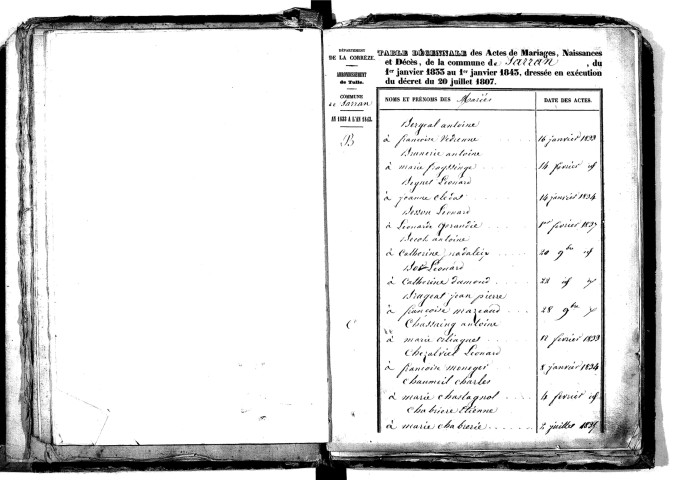 DÉPARTEMENT
DE LA CORRÈZE.
ARRONDISSEMENT
de Tulle.
COMMUNE
de Sarran
AN 1833 A L'AN 1843.
TABLE DÉCENNALE des Actes de Mariages, Naissances
et Décès, de la commune de Sarran, du
1er janvier 1833 au 1er janvier 1843, dressée en exécution
du décret du 20 juillet 1807.
NOMS ET PRÉNOMS DES Mariés DATE DES ACTES.
B
Bergeal antoine
à françoise Vedrenne 16 janvier 1833
Brunerie antoine
à marie frayssinge 14 février
Leonard
à jeanne clédat 14 janvier 1834
Besson Leonard
à Leonarde 1er février 1837
antoine
à Catherine nadalex 20 9bre
Leonard
à Catherine dumond 28
jean pierre
à françoise 28 9bre
C
Chassaing antoine
à marie 12 février 1833
Leonard
à françoise meneger 8 janvier 1834
Chaumeil charles
à marie chastagnol 4 février
Chabrière Etienne
à marie chabrerie 2 juillet